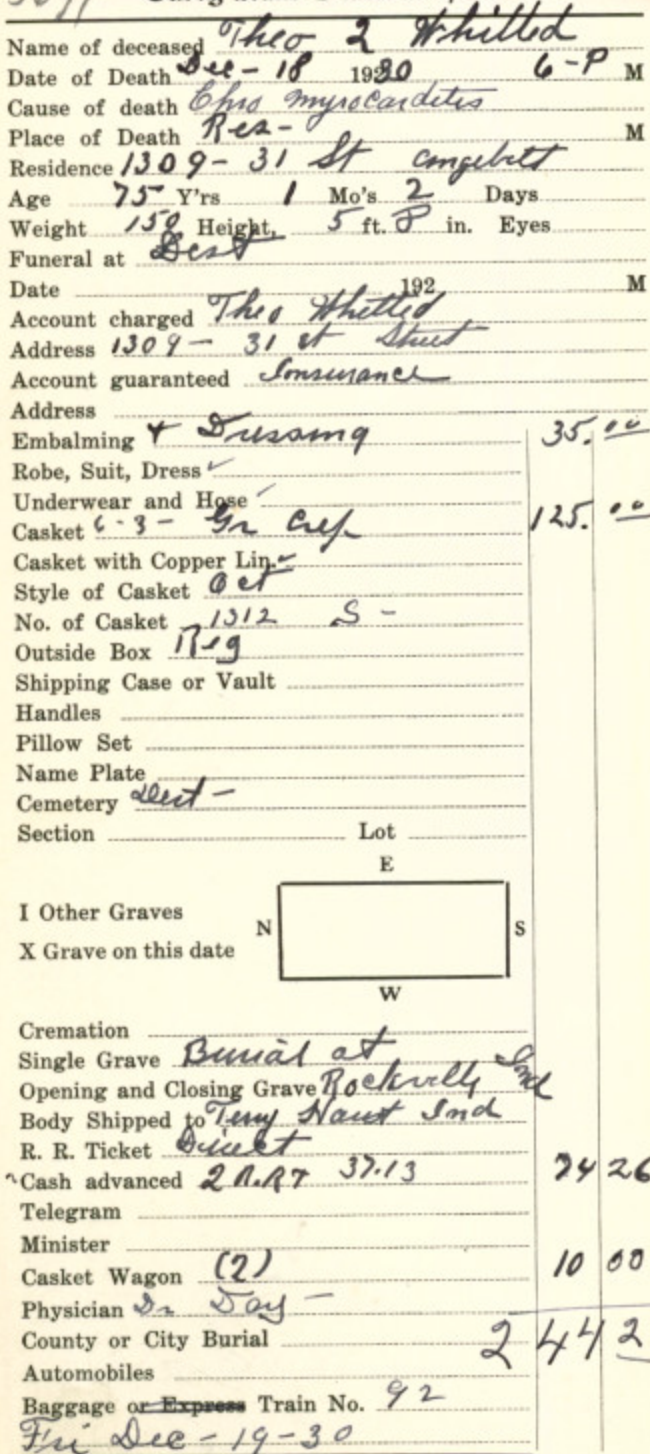 Name of deceased Theo 2 Whitted
Date of Death Dec - 18 1930 6 - P M
Cause of death Chro myrocarditis
Place of Death Res - M
Residence 1309 - 31 St
Age 75 Y'rs 1 Mo's 2 Days
Weight 150 Height, 5 ft. 8 in. Eyes
Funeral at Dest
Date 192 M
Account charged Theo Whitted
Address 1309 - 31 st Street
Account guaranteed Insurance
Address
Embalming + Dressing 35. 00
Robe, Suit, Dress ✓
Underwear and Hose ✓
Casket 6 - 3 - Gr Crep 125. 00
Casket with Copper Lin. ✓
Style of Casket Oct
No. of Casket 1312 S -
Outside Box Reg
Shipping Case or Vault
Handles
Pillow Set
Name Plate
Cemetery Dest -
Section Lot
E
I Other Graves
N S
X Grave on this date
W
Cremation
Single Grave Burial at
Opening and Closing Grave Rockville Ind
Body Shipped to Terry Haut Ind
R. R. Ticket Direct
Cash advanced 2 R.R T 37.13 74 26
Telegram
Minister
Casket Wagon (2) 10 00
Physician Dr Day -
County or City Burial 244 2
Automobiles
Baggage or Express Train No. 92
Fri Dec - 19 - 30